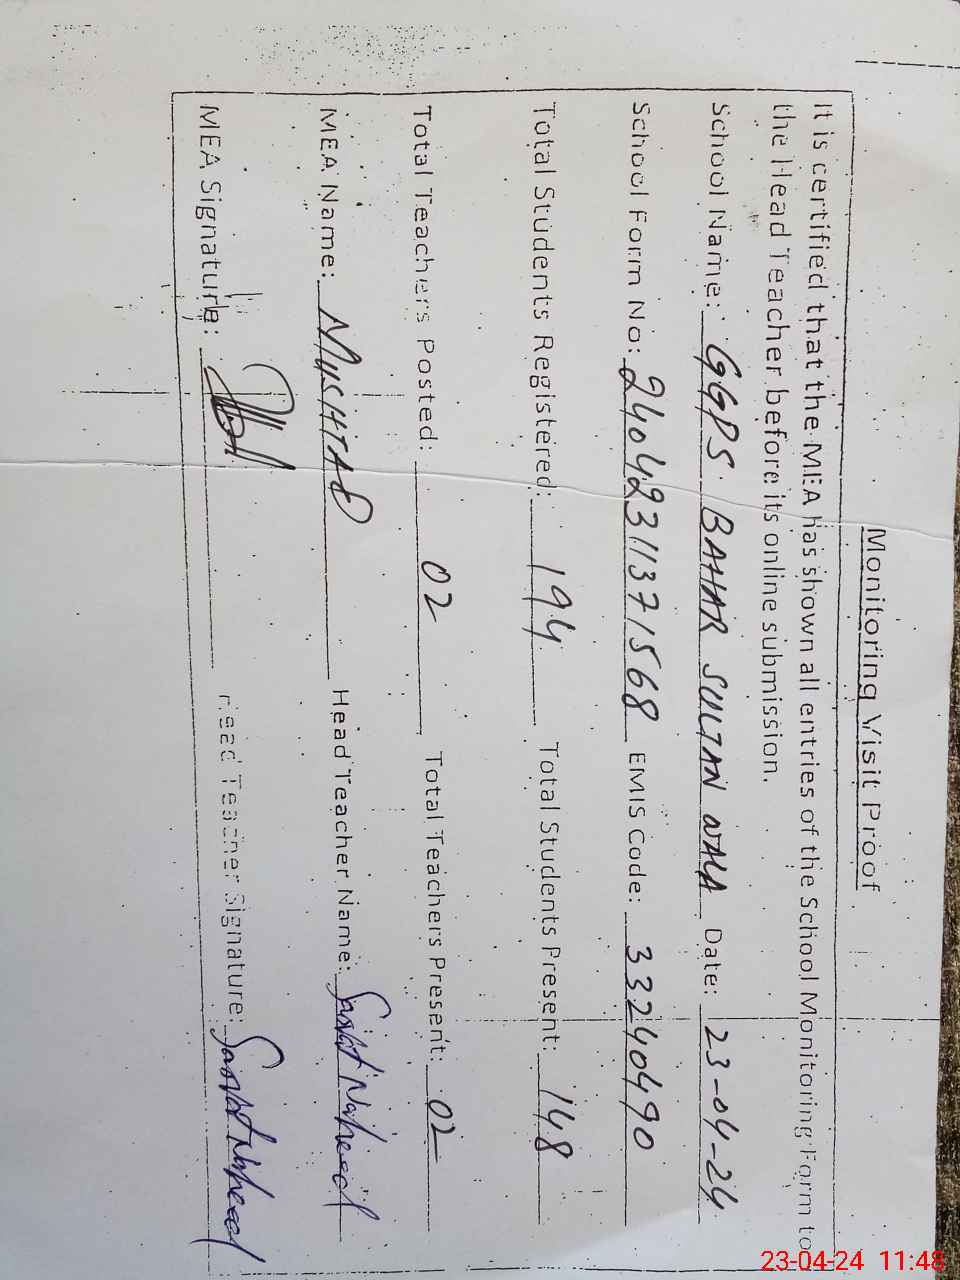 Monitoring Visit Proof
It is certified that the MEA has shown all entries of the School Monitoring Form to
the Head Teacher before its online submission.
School Name: GGPS. BAHAR SULTAN WALA Date: 23-04-24
School Form No: 2404231137 1568 EMIS Code: 33240490
Total Students Registered: 194 Total Students Present: 148
Total Teachers Posted: 02 Total Teachers Present: 02
MEA Name: MUSHTAQ Head Teacher Name: Naheed
MEA Signature: Head Teacher Signature: Naheed
23-04-24 11:48